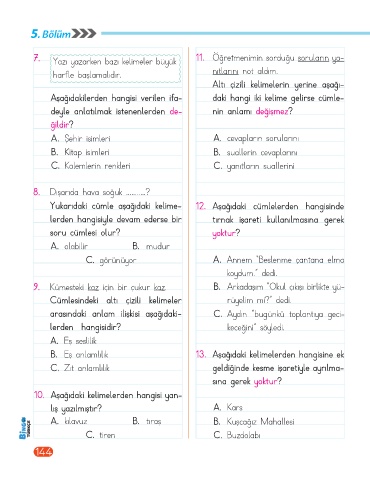 5. Bölüm
7. Yazı yazarken bazı kelimeler büyük
harfle başlamalıdır.
Aşağıdakilerden hangisi verilen ifa-
deyle anlatılmak istenenlerden de-
ğildir?
A. Şehir isimleri
B. Kitap isimleri
C. Kalemlerin renkleri
8. Dışarıda hava soğuk ..........?
Yukarıdaki cümle aşağıdaki kelime-
lerden hangisiyle devam ederse bir
soru cümlesi olur?
A. olabilir B. mudur
C. görünüyor
9. Kümesteki kaz için bir çukur kaz.
Cümlesindeki altı çizili kelimeler
arasındaki anlam ilişkisi aşağıdaki-
lerden hangisidir?
A. Eş seslilik
B. Eş anlamlılık
C. Zıt anlamlılık
10. Aşağıdaki kelimelerden hangisi yan-
lış yazılmıştır?
A. kılavuz B. tıraş
C. tiren
11. Öğretmenimin sorduğu soruların ya-
nıtlarını not aldım.
Altı çizili kelimelerin yerine aşağı-
daki hangi iki kelime gelirse cümle-
nin anlamı değişmez?
A. cevapların sorularını
B. suallerin cevaplarını
C. yanıtların suallerini
12. Aşağıdaki cümlelerden hangisinde
tırnak işareti kullanılmasına gerek
yoktur?
A. Annem "Beslenme çantana elma
koydum." dedi.
B. Arkadaşım "Okul çıkışı birlikte yü-
rüyelim mi?" dedi.
C. Aydın "bugünkü toplantıya geci-
keceğini" söyledi.
13. Aşağıdaki kelimelerden hangisine ek
geldiğinde kesme işaretiyle ayrılma-
sına gerek yoktur?
A. Kars
B. Kuşcağız Mahallesi
C. Buzdolabı
BiNGO
TÜRKÇE
144